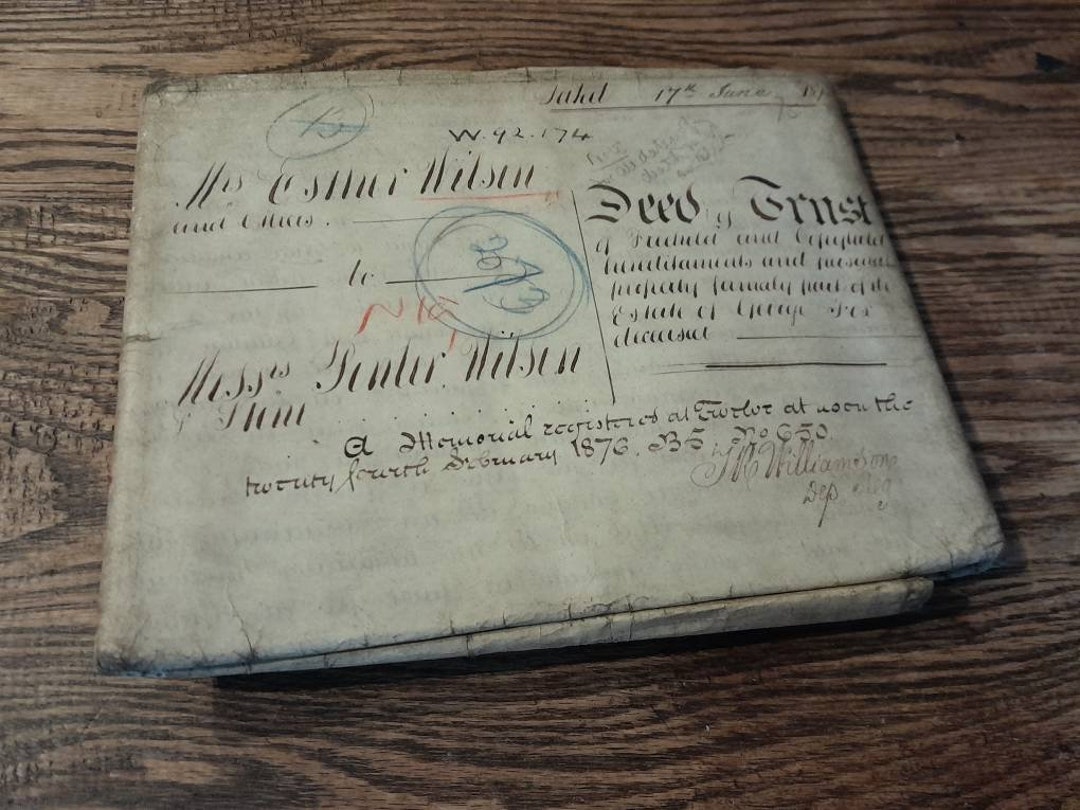 Dated 17th June
W.92.174
Mrs Esther Wilson
and Others.
to
Messrs Wilson
&
Deed of Trust
of Freehold and Copyhold
hereditaments and personal
property formerly part of the
Estate of George
deceased
A Memorial registered at Twelve at noon the
twenty fourth February 1876. B 5. No 650.
Williamson
Dep Reg